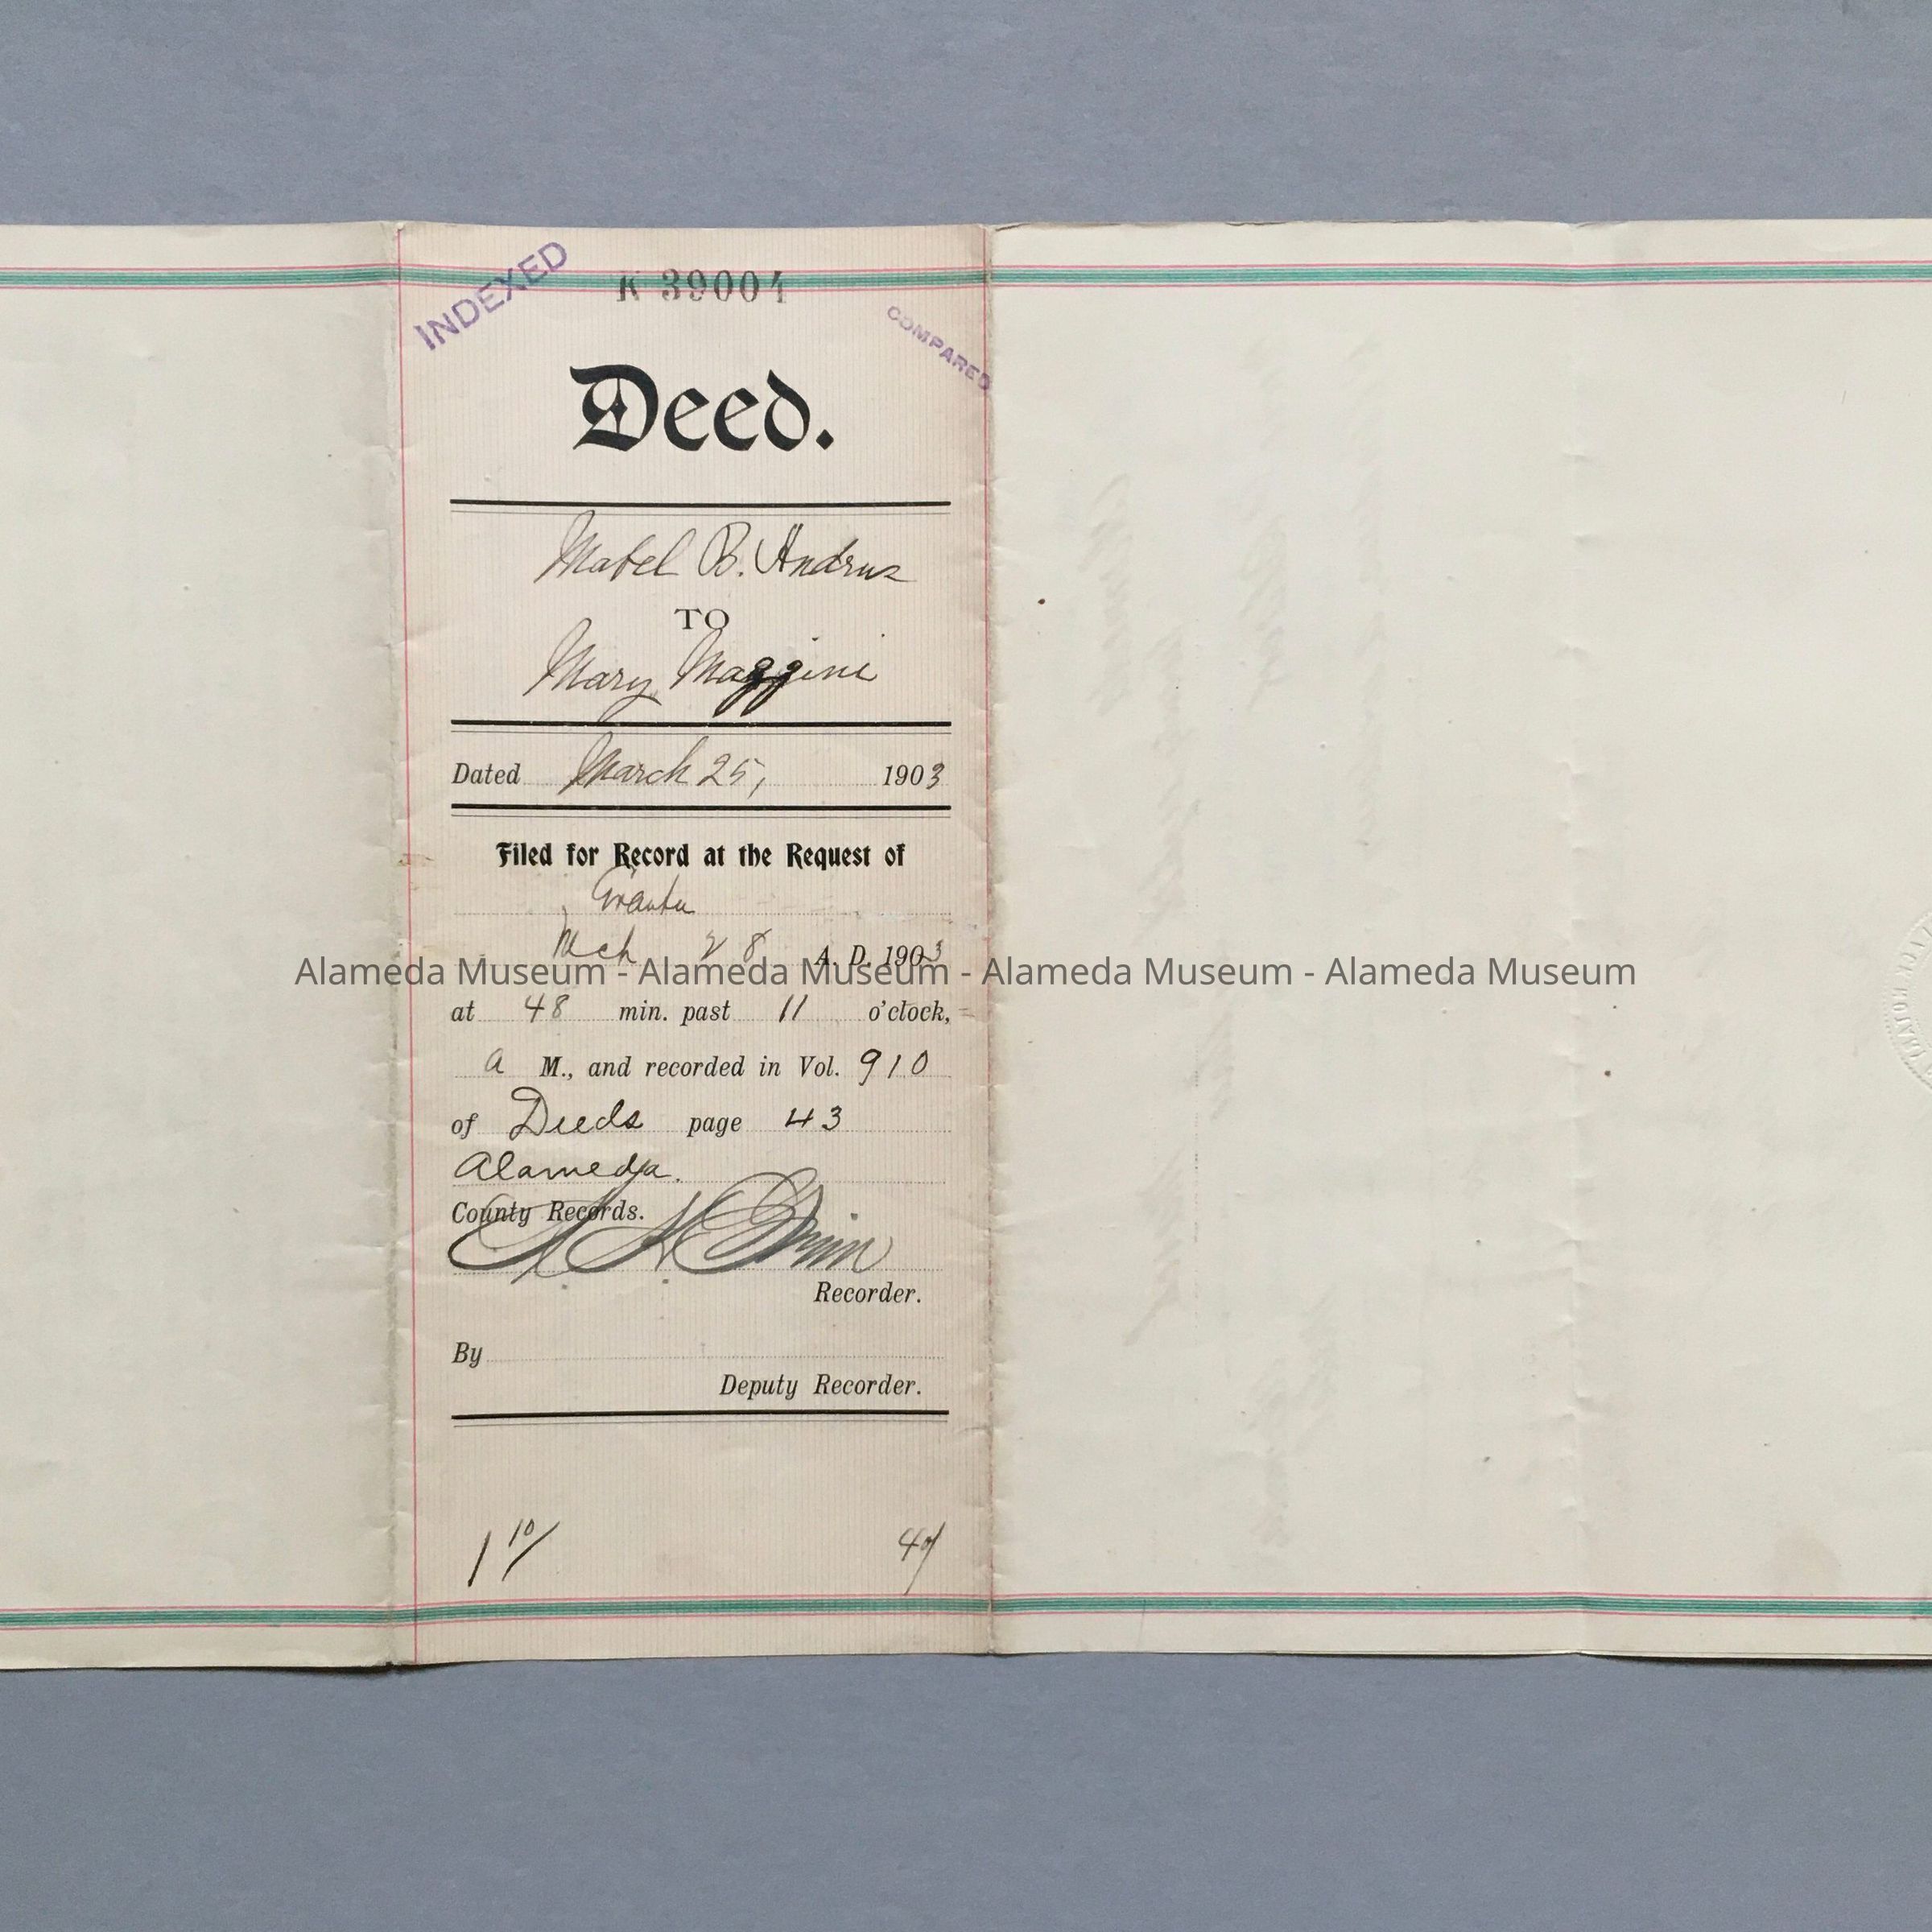 INDEXED
K 39004
COMPARED
Deed.
Mabel B. Andrus
TO
Mary Maggini
Dated March 25, 1903
Filed for Record at the Request of
Grantee
Mch 28 A. D. 1903
Alameda Museum - Alameda Museum - Alameda Museum - Alameda Museum
at 48 min. past 11 o'clock,
a M., and recorded in Vol. 910
of Deeds page 43
Alameda.
County Records.
Recorder.
By
Deputy Recorder.
1 10/